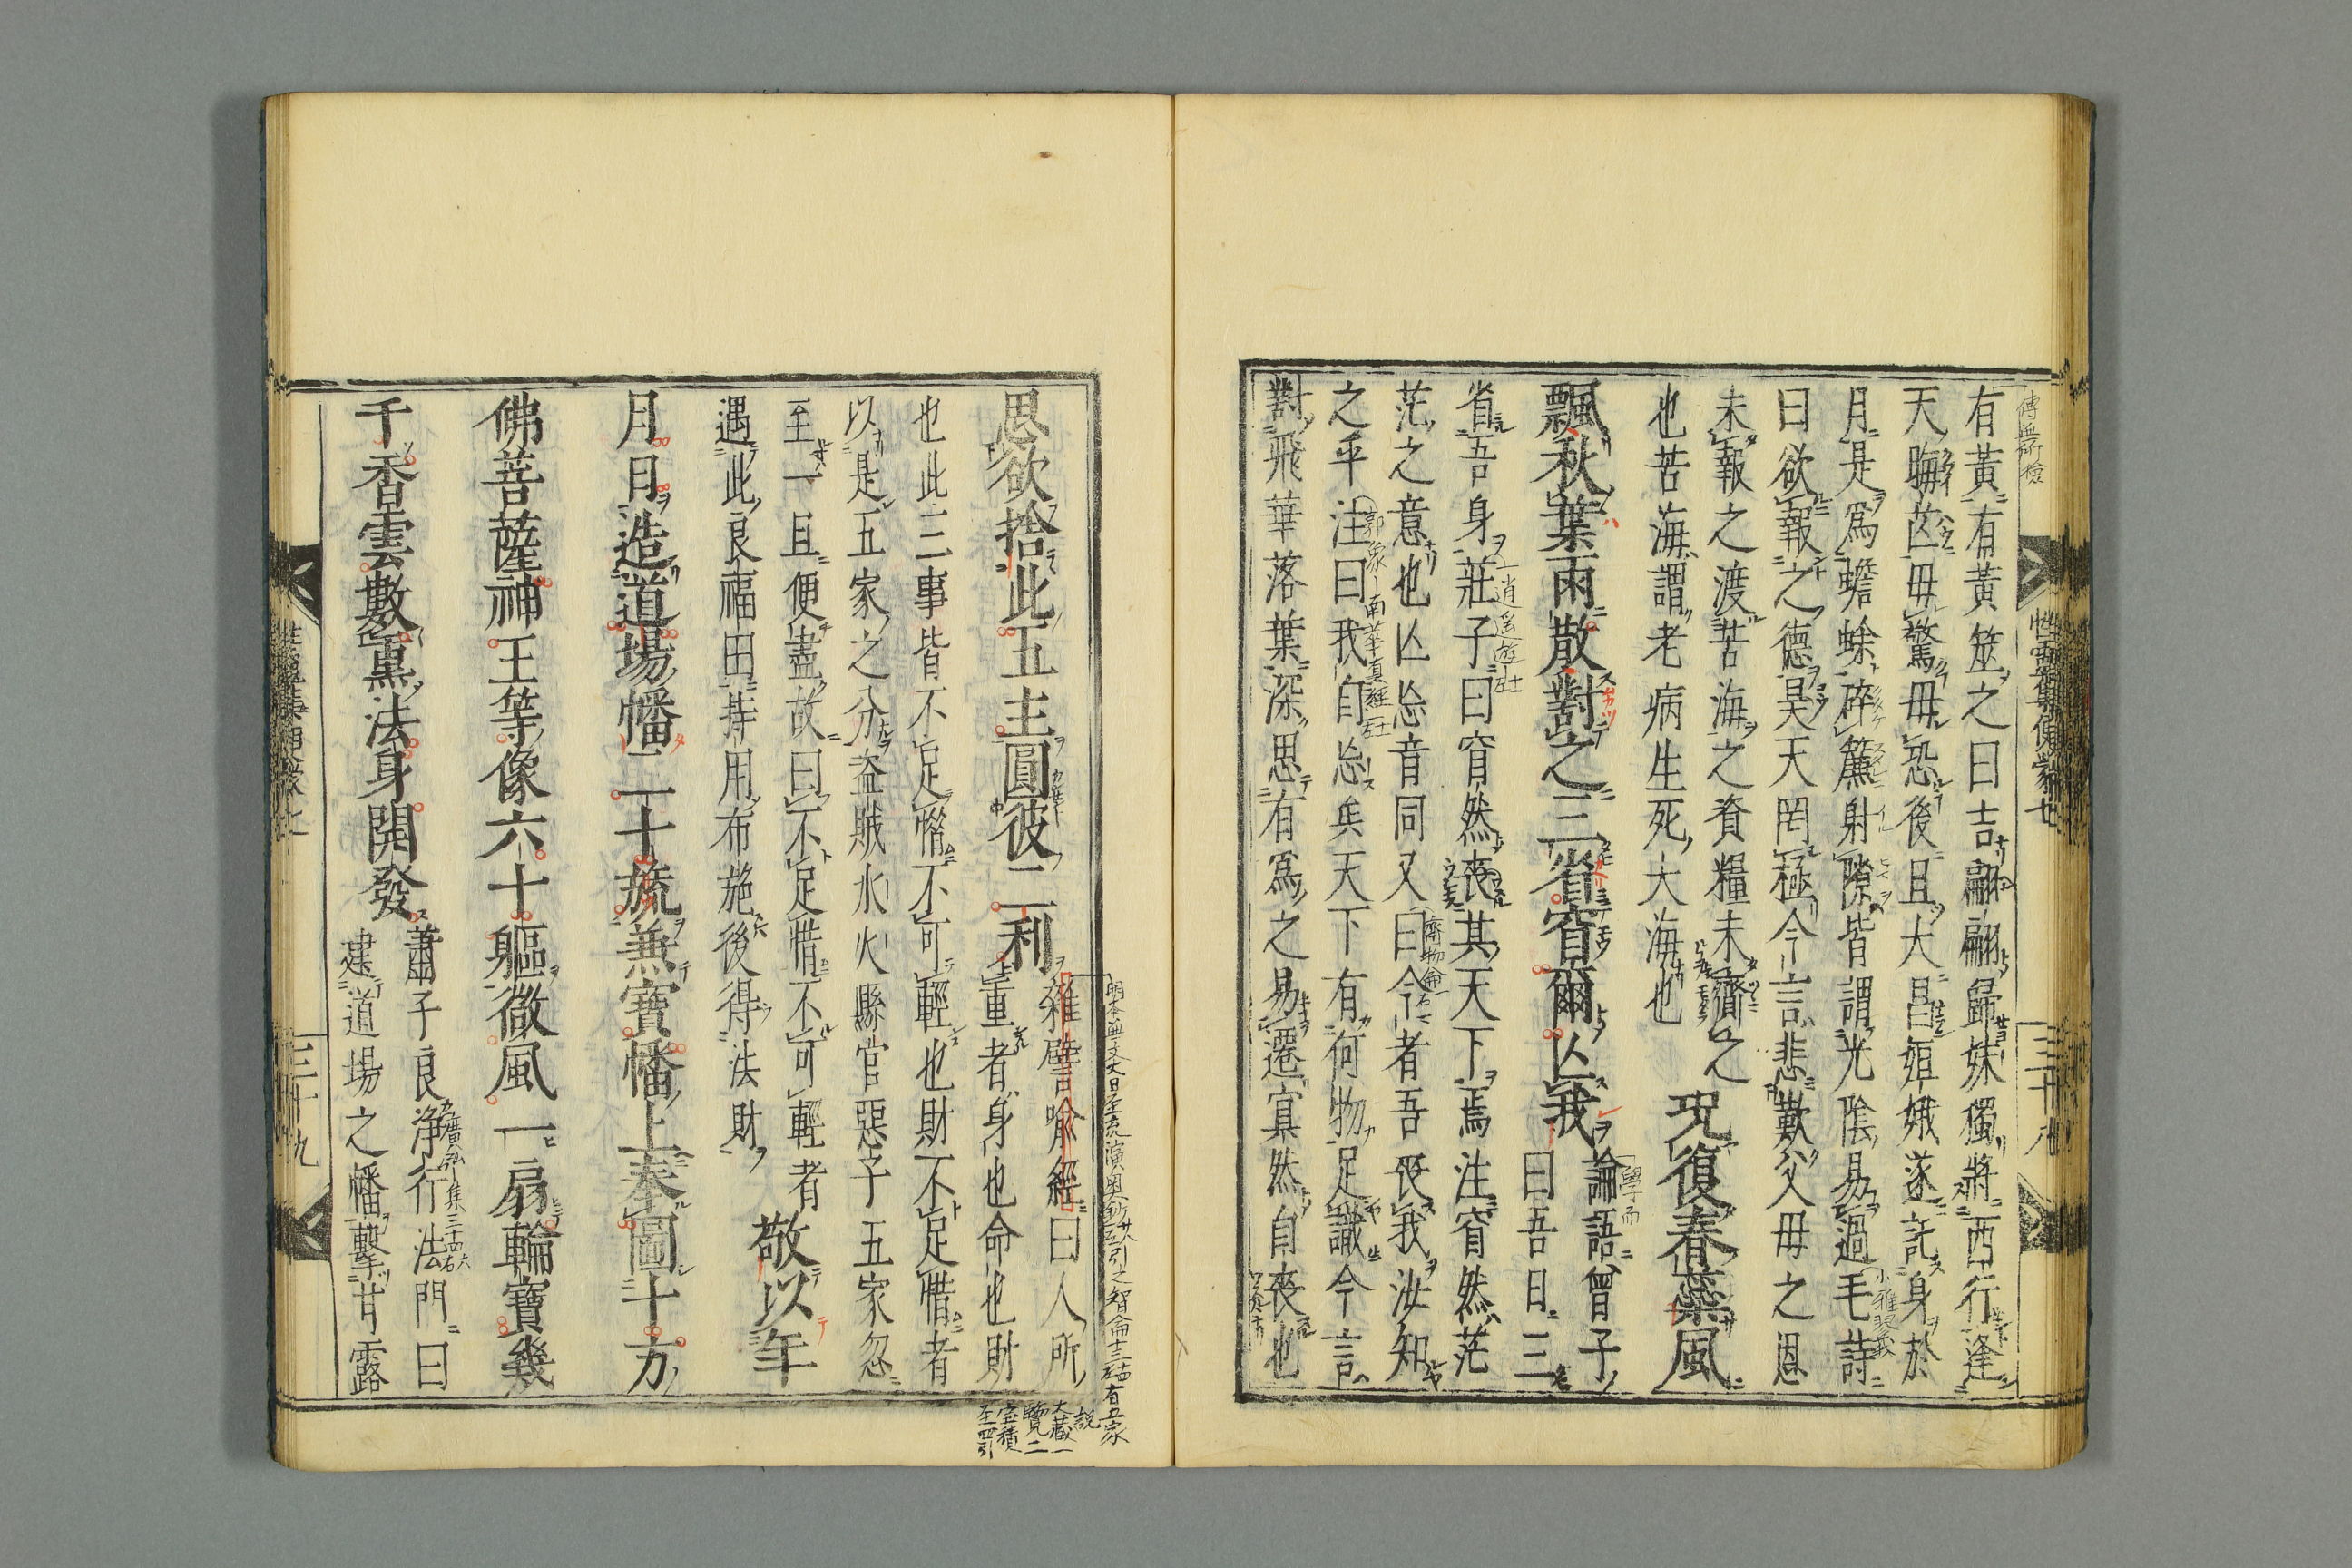 有黃有黃筮之曰吉翩翩歸妹獨將西行逢
天晦芒毋驚毋恐後且大昌姮娥遂託身於
月是爲蟾蜍碎簾射隙皆謂光陰易過毛詩
曰欲報之德昊天罔極今言悲歎父母之恩
未報之渡苦海之資糧未齎之
也苦海謂老病生死大海也
況復春蘂風
飄秋葉雨散對之三省窅爾亾我
論語曾子
曰吾日三
省吾身莊子曰窅然喪其天下焉注窅然茫
茫之意也亾忘音同又曰今者吾喪我汝知
之乎注曰我自忘矣天下有何物足識今言
對飛華落葉深思有爲之易遷寘然自喪也
性霊集便蒙七
三十八
思欲捨此五主圓彼二利
雜譬喩經曰人所
重者身也命也財
也此三事皆不足惜不可輕也財不足惜者
以是五家之分盗賊水火縣官惡子五家忽
至一旦便盡故曰不足惜不可輕者
遇此良福田持用布施後得法財
敬以年
月日造道場幡二十旒兼寶幡上奉圖十方
佛菩薩神王等像六十軀徽風一扇輪寶幾
千香雲數熏法身開發
蕭子良淨行法門曰
建道場之幡擊甘露
三十九